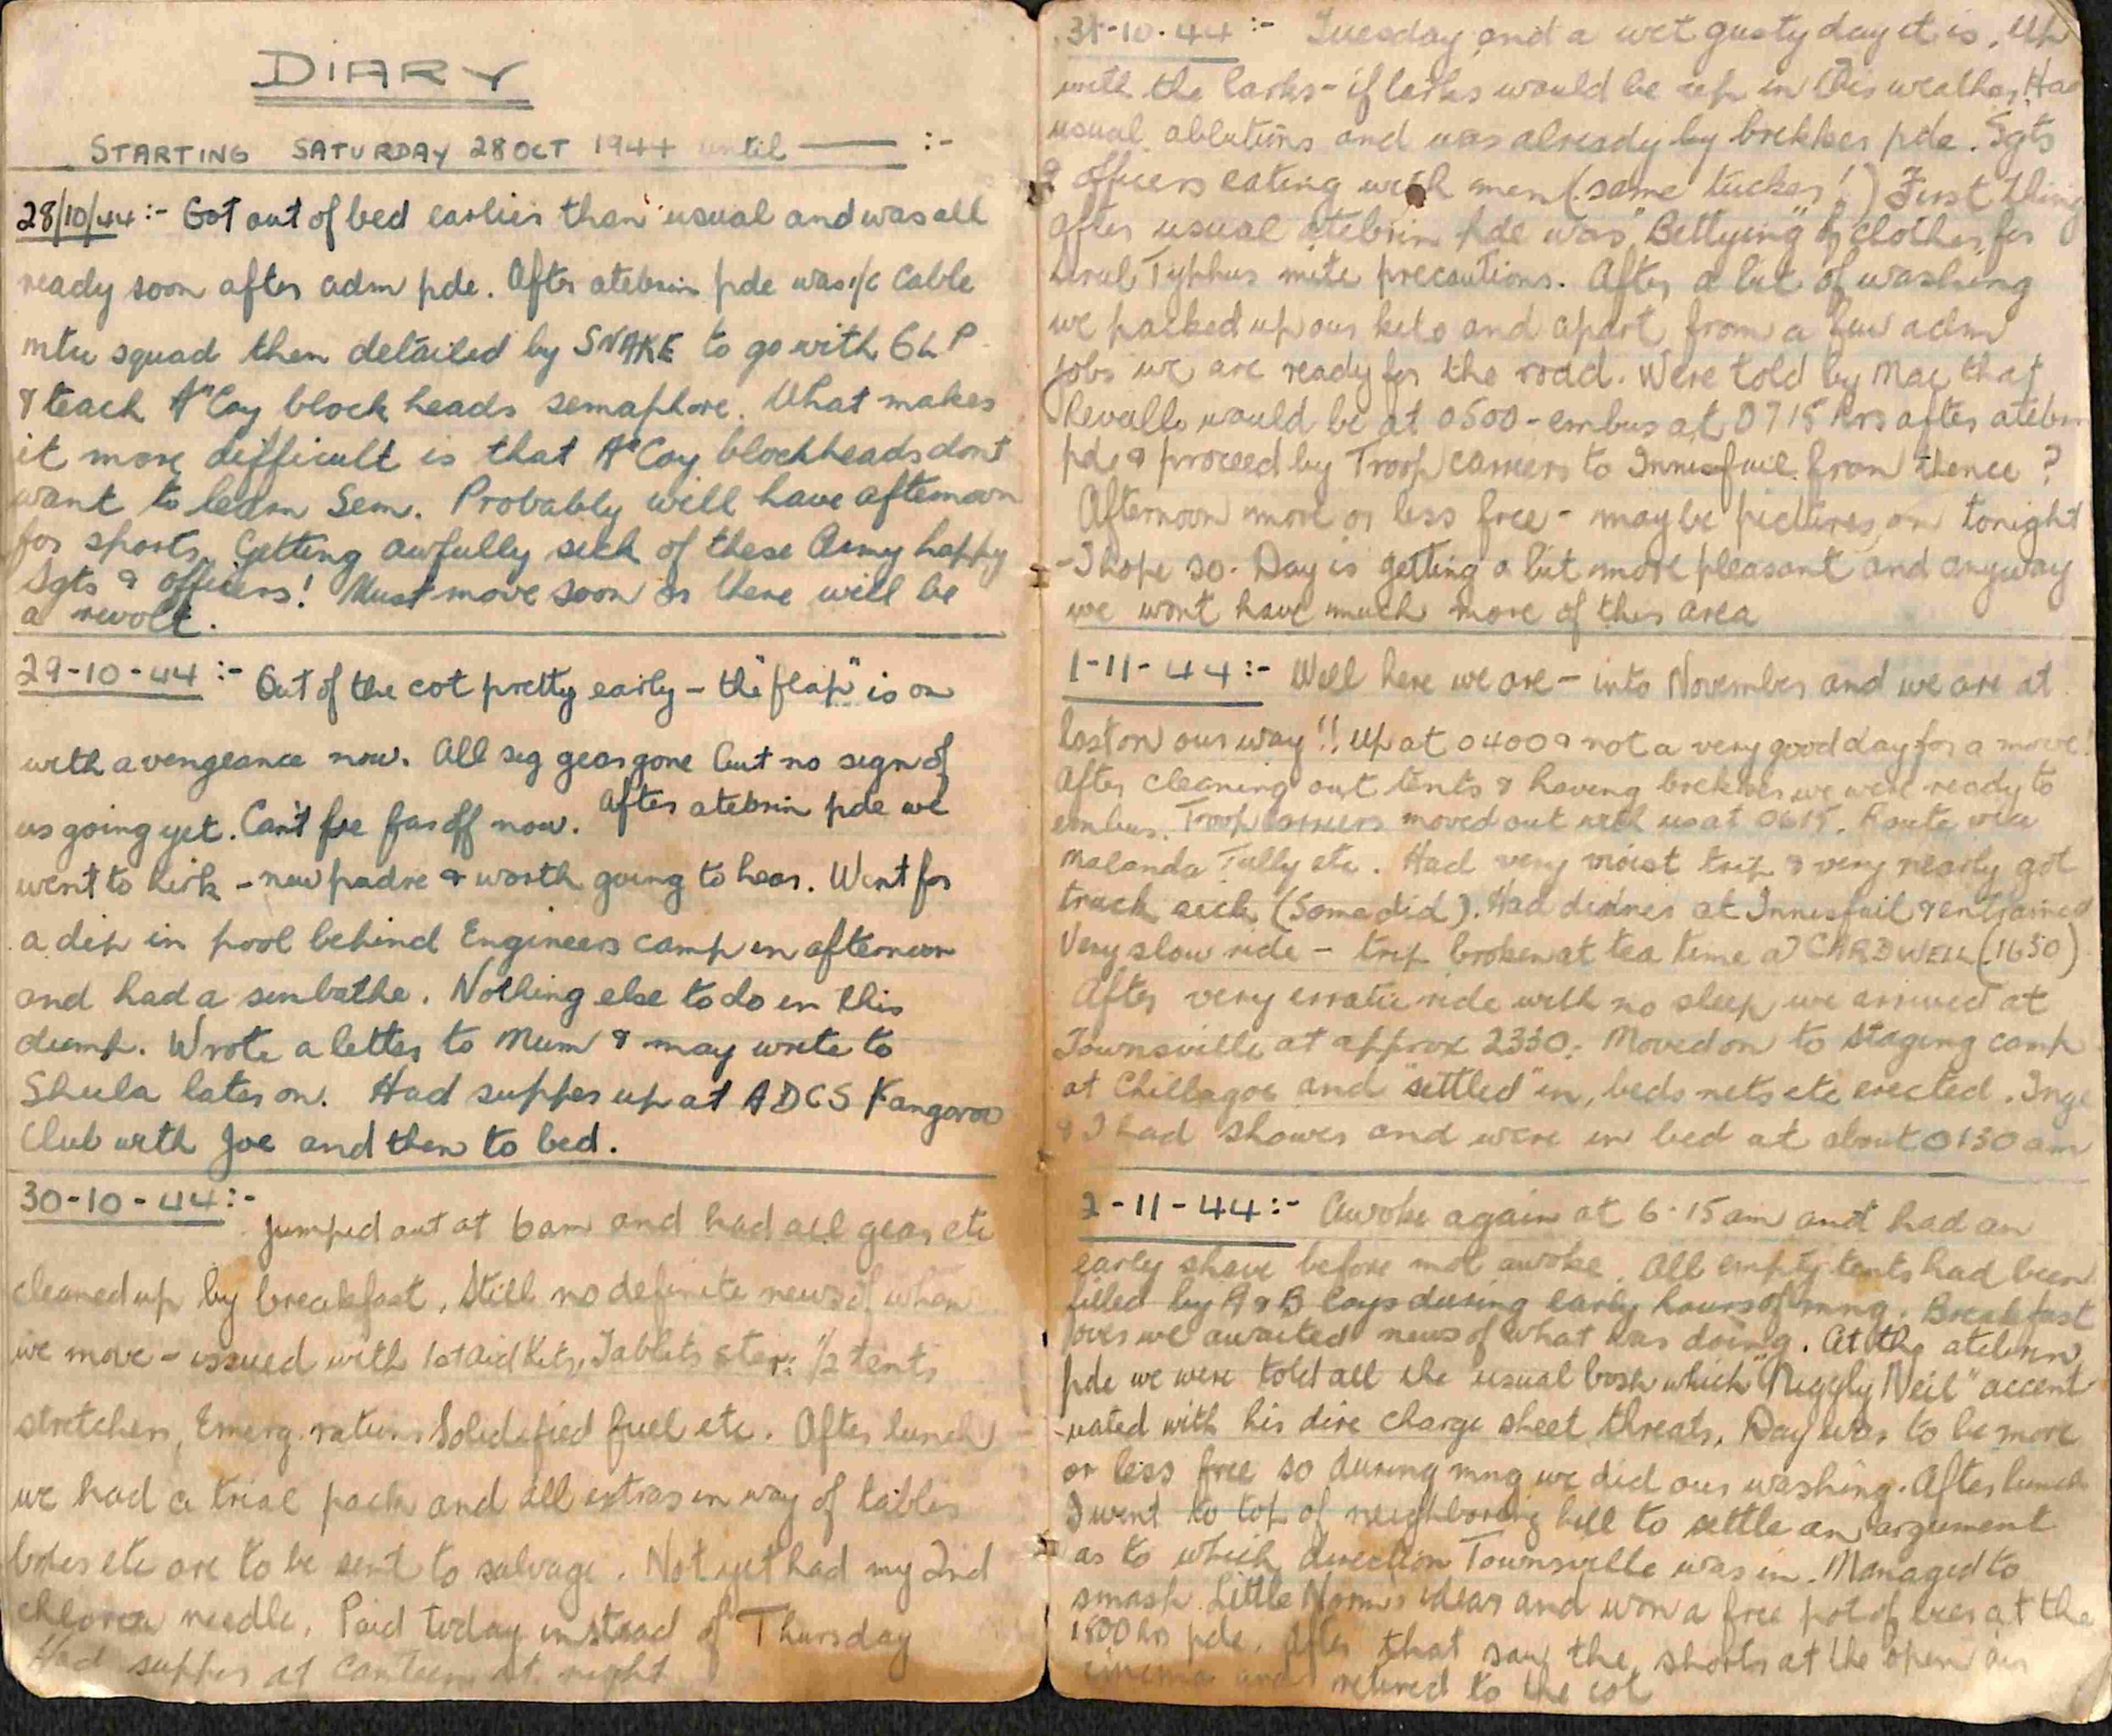 DIARY
STARTING SATURDAY 28 OCT 1944 until —— :-
28/10/44:- Got out of bed earlier than usual and was all
ready soon after adm pde. After atebrin pde was i/c cable
mtce squad then detailed by SNAKE to go with 6LP
& teach "A" Coy block heads semaphore. What makes
it more difficult is that "A" Coy blockheads dont
want to learn Sem. Probably will have afternoon
for sports. Getting awfully sick of these Army happy
Sgts & officers! Must move soon or there will be
a revolt.
29-10-44:- Out of the cot pretty early - the "flap" is on
with a vengeance now. All sig gear gone but no sign of
us going yet. Can't be far off now. After atebrin pde we
went to kirk - new padre & worth going to hear. Went for
a dip in pool behind Engineers camp in afternoon
and had a sunbathe. Nothing else to do in this
dump. Wrote a letter to Mum & may write to
Sheila later on. Had supper up at ADCS Kangaroo
Club with Joe and then to bed.
30-10-44:-
Jumped out at 6 am and had all gear etc
cleaned up by breakfast. Still no definite news of when
we move - issued with 1st Aid Kits, Tablets ster: 1/2 tents
stretchers, Emerg. rations Solidified fuel etc. After lunch
we had a trial pack and all extras in way of tables
boxes etc are to be sent to salvage. Not yet had my 2nd
chlorea needle. Paid today instead of Thursday
Had supper at canteen at night
31-10-44:- Tuesday and a wet gusty day it is. Up
with the larks - if larks would be up in this weather. Had
usual ablutions and was already by brekker pde. Sgts
& officers eating with men (same tucker!) First thing
after usual atebrin pde was "Bettying" of clothes for
Typhus mite precautions. After a bit of washing
we packed up our kits and apart from a few adm
jobs we are ready for the road. Were told by Mac that
Revallie would be at 0500 - embus at 0715 hrs after atebrin
pde & proceed by Troop carriers to Innisfail from thence ?
Afternoon more or less free - maybe pictures on tonight
- I hope so. Day is getting a bit more pleasant and anyway
we wont have much more of this area
1-11-44:- Well here we are - into November and we are at
last on our way!! Up at 0400 & not a very good day for a move!
After cleaning out tents & having brekker we were ready to
embus. Troop carriers moved out with us at 0615. Route via
Malanda Tully etc. Had very moist trip & very nearly got
truck sick (Some did). Had dinner at Innisfail & entrained
Very slow ride - trip broken at tea time at CARDWELL (1650)
After very erratic ride with no sleep we arrived at
Townsville at approx 2330. Moved on to staging camp
at Chillagoe and "settled" in, beds nets etc erected. Inge
& I had shower and were in bed at about 0130 am
2-11-44:- Awoke again at 6.15 am and had an
early shave before mob awoke. All empty tents had been
filled by A & B Coys during early hours of mng. Breakfast
over we awaited news of what was doing. At the atebrin
pde we were told all the usual bosh which "Niggly Neil" accent
-uated with his dire charge sheet threats. Day was to be more
or less free so during mng we did our washing. After lunch
I went to top of neighboring hill to settle an argument
as to which direction Townsville was in. Managed to
smash Little Norm's ideas and won a free pot of beer at the
1800 hrs pde. After that saw the shorts at the open air
cinema and retired to the cot